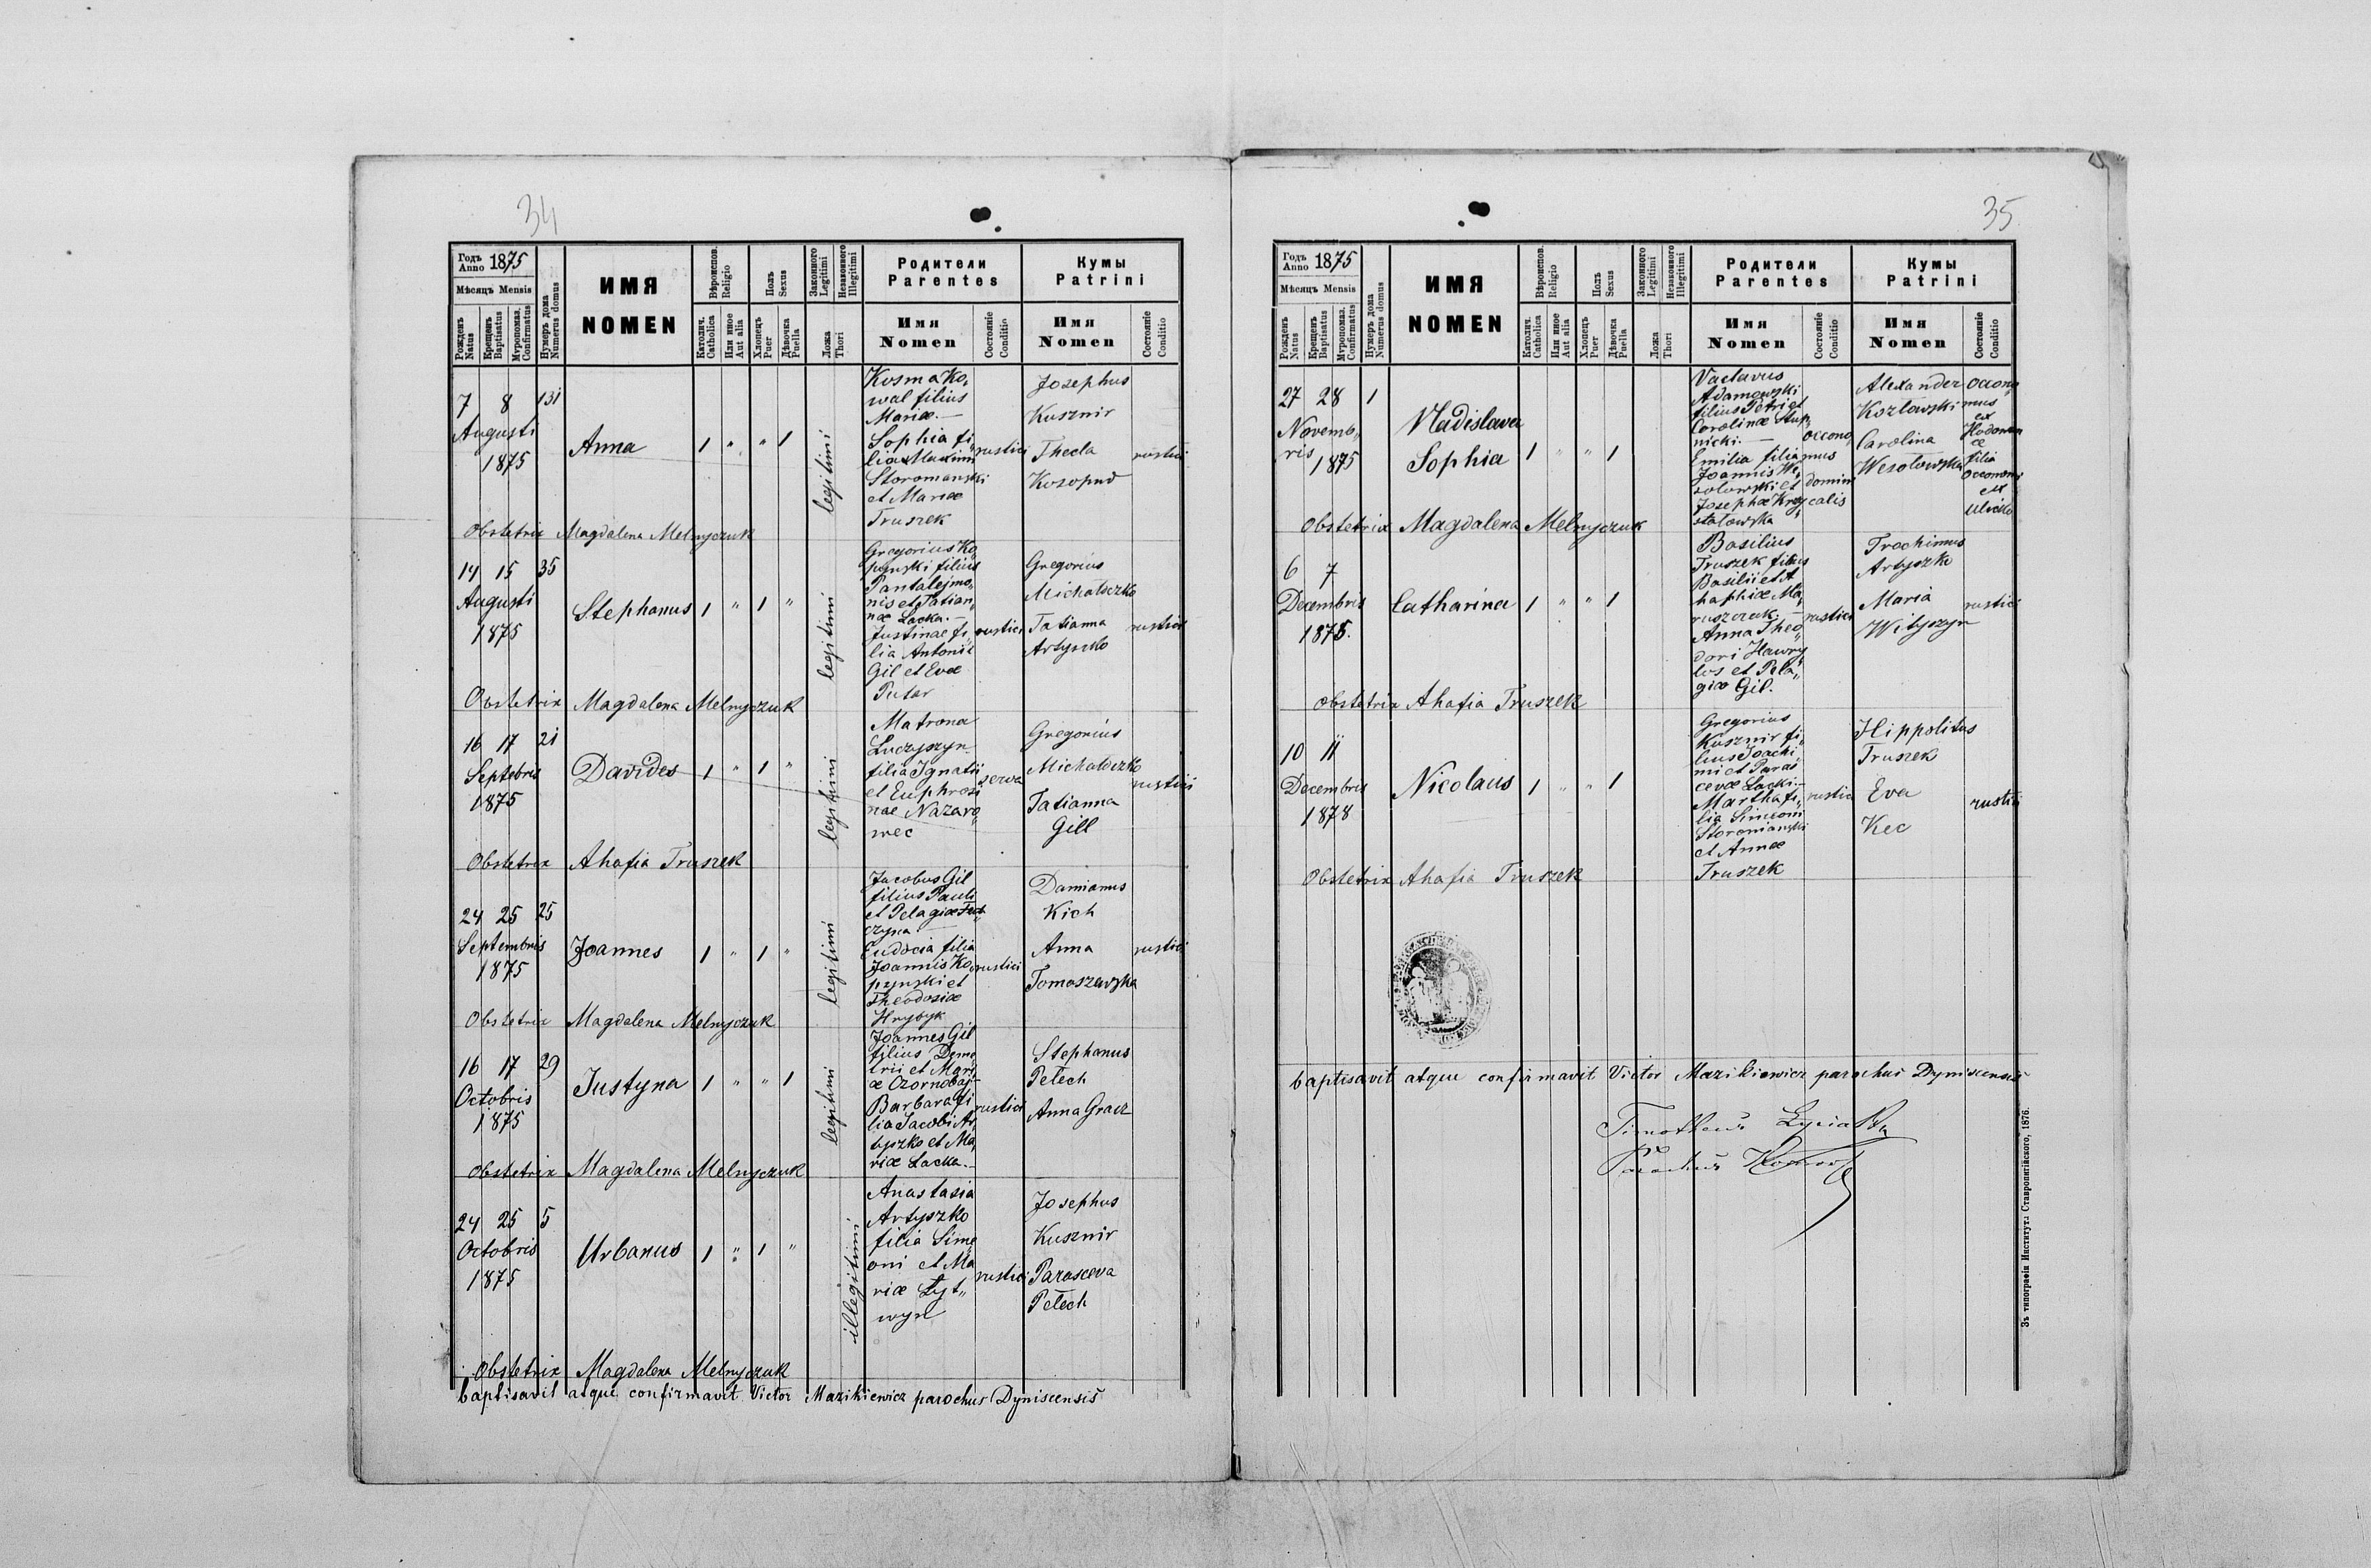 34
Годъ
Anno 1875
Мѣсяцъ Mensis
Рожденъ
Natus
Крещенъ
Baptisatus
Муропомаз.
Confirmatus
Нумеръ дома
Numerus domus
ИМЯ
NOMEN
Вѣроиспов.
Religio
Католич.
Catholica
Или иное
Aut alia
Полъ
Sexus
Хлопецъ
Puer
Дѣвочка
Puella
Законного
Legitimi
Незаконного
Illegitimi
Ложа
Thori
Родители
Parentes
Имя
Nomen
Состояніе
Conditio
Кумы
Patrini
Имя
Nomen
Состояніе
Conditio
7 8 131
Augusti
1875
Anna
1 " " 1
legitimi
Kosma Ko„
wal filius
Mariæ.—
Sophia fi„
lia Maximi
Storomanski
et Mariæ
Truszek
rustici
Josephus
Kusznir
Thecla
Kosopud
rustici
Obstetrix Magdalena Melnyczuk
14 15 35
Augusti
1875
Stephanus
1 " 1 "
legitimi
Gregorius Ko„
pynski filius
Pantalejmo„
nis et Tatian„
næ Lacka.—
Justinae fi„
lia Antonii
Gil et Evæ
Putar
rustici
Gregorius
Michałoczko
Tatianna
Artyszko
rustici
Obstetrix Magdalena Melnyczuk
16 17 21
Septebris
1875
Davides
1 " 1 "
legitimi
Matrona
Luczyszyn
filia Ignatii
et Euphrosi„
nae Nazaro„
wec
serva
Gregorius
Michałoczko
Tatianna
Gill
rustici
Obstetrix Ahafia Truszek
24 25 25
Septembris
1875
Joannes
1 " 1 "
legitimi
Jacobus Gil
filius Pauli
et Pelagiæ Fed„
czyna —
Eudocia filia
Joannis Ko„
pynski et
Theodosiæ
Hrybyk
rustici
Damianus
Kich
Anna
Tomaszewska
rustici
Obstetrix Magdalena Melnyczuk
16 17 29
Octobris
1875
Justyna
1 " " 1
legitimi
Joannes Gil
filius Deme„
trii et Mari„
æ Czornobaj—
Barbara fi„
lia Jacobi Ar„
tyszko et Ma„
riæ Lacka.—
rustici
Stephanus
Pełech
Anna Gracz
Obstetrix Magdalena Melnyczuk
24 25 5
Octobris
1875
Urbanus
1 " 1 "
illegitimi
Anastasia
Artyszko
filia Sime„
oni et Ma„
riæ Łyt„
wyn
rustici
Josephus
Kusznir
Parasceva
Pełech
Obstetrix Magdalena Melnyczuk
baptisavit atque confirmavit Victor Mazikiewicz parochus Dyniscensis
35
Годъ
Anno 1875
Мѣсяцъ Mensis
Рожденъ
Natus
Крещенъ
Baptisatus
Муропомаз.
Confirmatus
Нумеръ дома
Numerus domus
ИМЯ
NOMEN
Вѣроиспов.
Religio
Католич.
Catholica
Или иное
Aut alia
Полъ
Sexus
Хлопецъ
Puer
Дѣвочка
Puella
Законного
Legitimi
Незаконного
Illegitimi
Ложа
Thori
Родители
Parentes
Имя
Nomen
Состояніе
Conditio
Кумы
Patrini
Имя
Nomen
Состояніе
Conditio
27 28 1
Novemb„
ris
1875
Vladislava
Sophia
1 " " 1
Vaclavus
Adamowski
filius Petri et
Carolinæ Stup„
nicki.—
Emilia filia
Joannis We„
solowski et
Josephæ Krzy„
stałowska
occono„
mus
domini
calis
Alexander
Kozłowski
Carolina
Wesołowska
occono„
mus
ex
filia
occonomi
ex
Obstetrix Magdalena Melnyczuk
6 7
Decembris
1875.
Catharina
1 " " 1
Basilius
Truszek filius
Basilii et A„
haphiæ Ma„
ruszczuk.—
Anna Theo„
dori Hawry„
los et Pela„
giæ Gil.
rustici
Trochimus
Artyszko
Maria
Wityszyn
rustici
obstetrix Ahafia Truszek
10 11
Decembris
1878
Nicolaus
1 " " 1
Gregorius
Kusznir fi„
lius Joachi„
mi et Paras„
cevæ Lacki.—
Martha fi„
lia Simeoni
Storomianski
et Annæ
Truszek
rustici
Hippolitus
Truszek
Eva
Kec
rustici
Obstetrix Ahafia Truszek
baptisavit atque confirmavit Victor Mazikiewicz parochus Dyniscensis
Timotheus
Parochus
Зъ типографіи Института Ставропигійского, 1876.